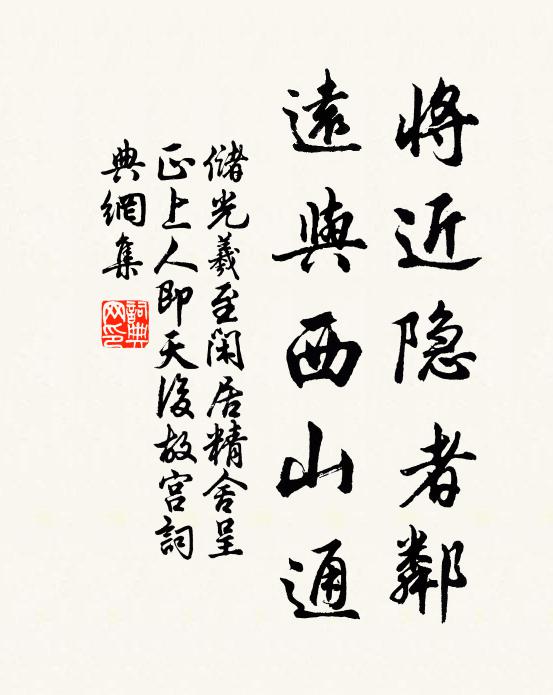 將近隐者鄰
遠與西山通
儲光羲至閑居精舍呈
正上人即天後故宫詞
典網集
詞典网印